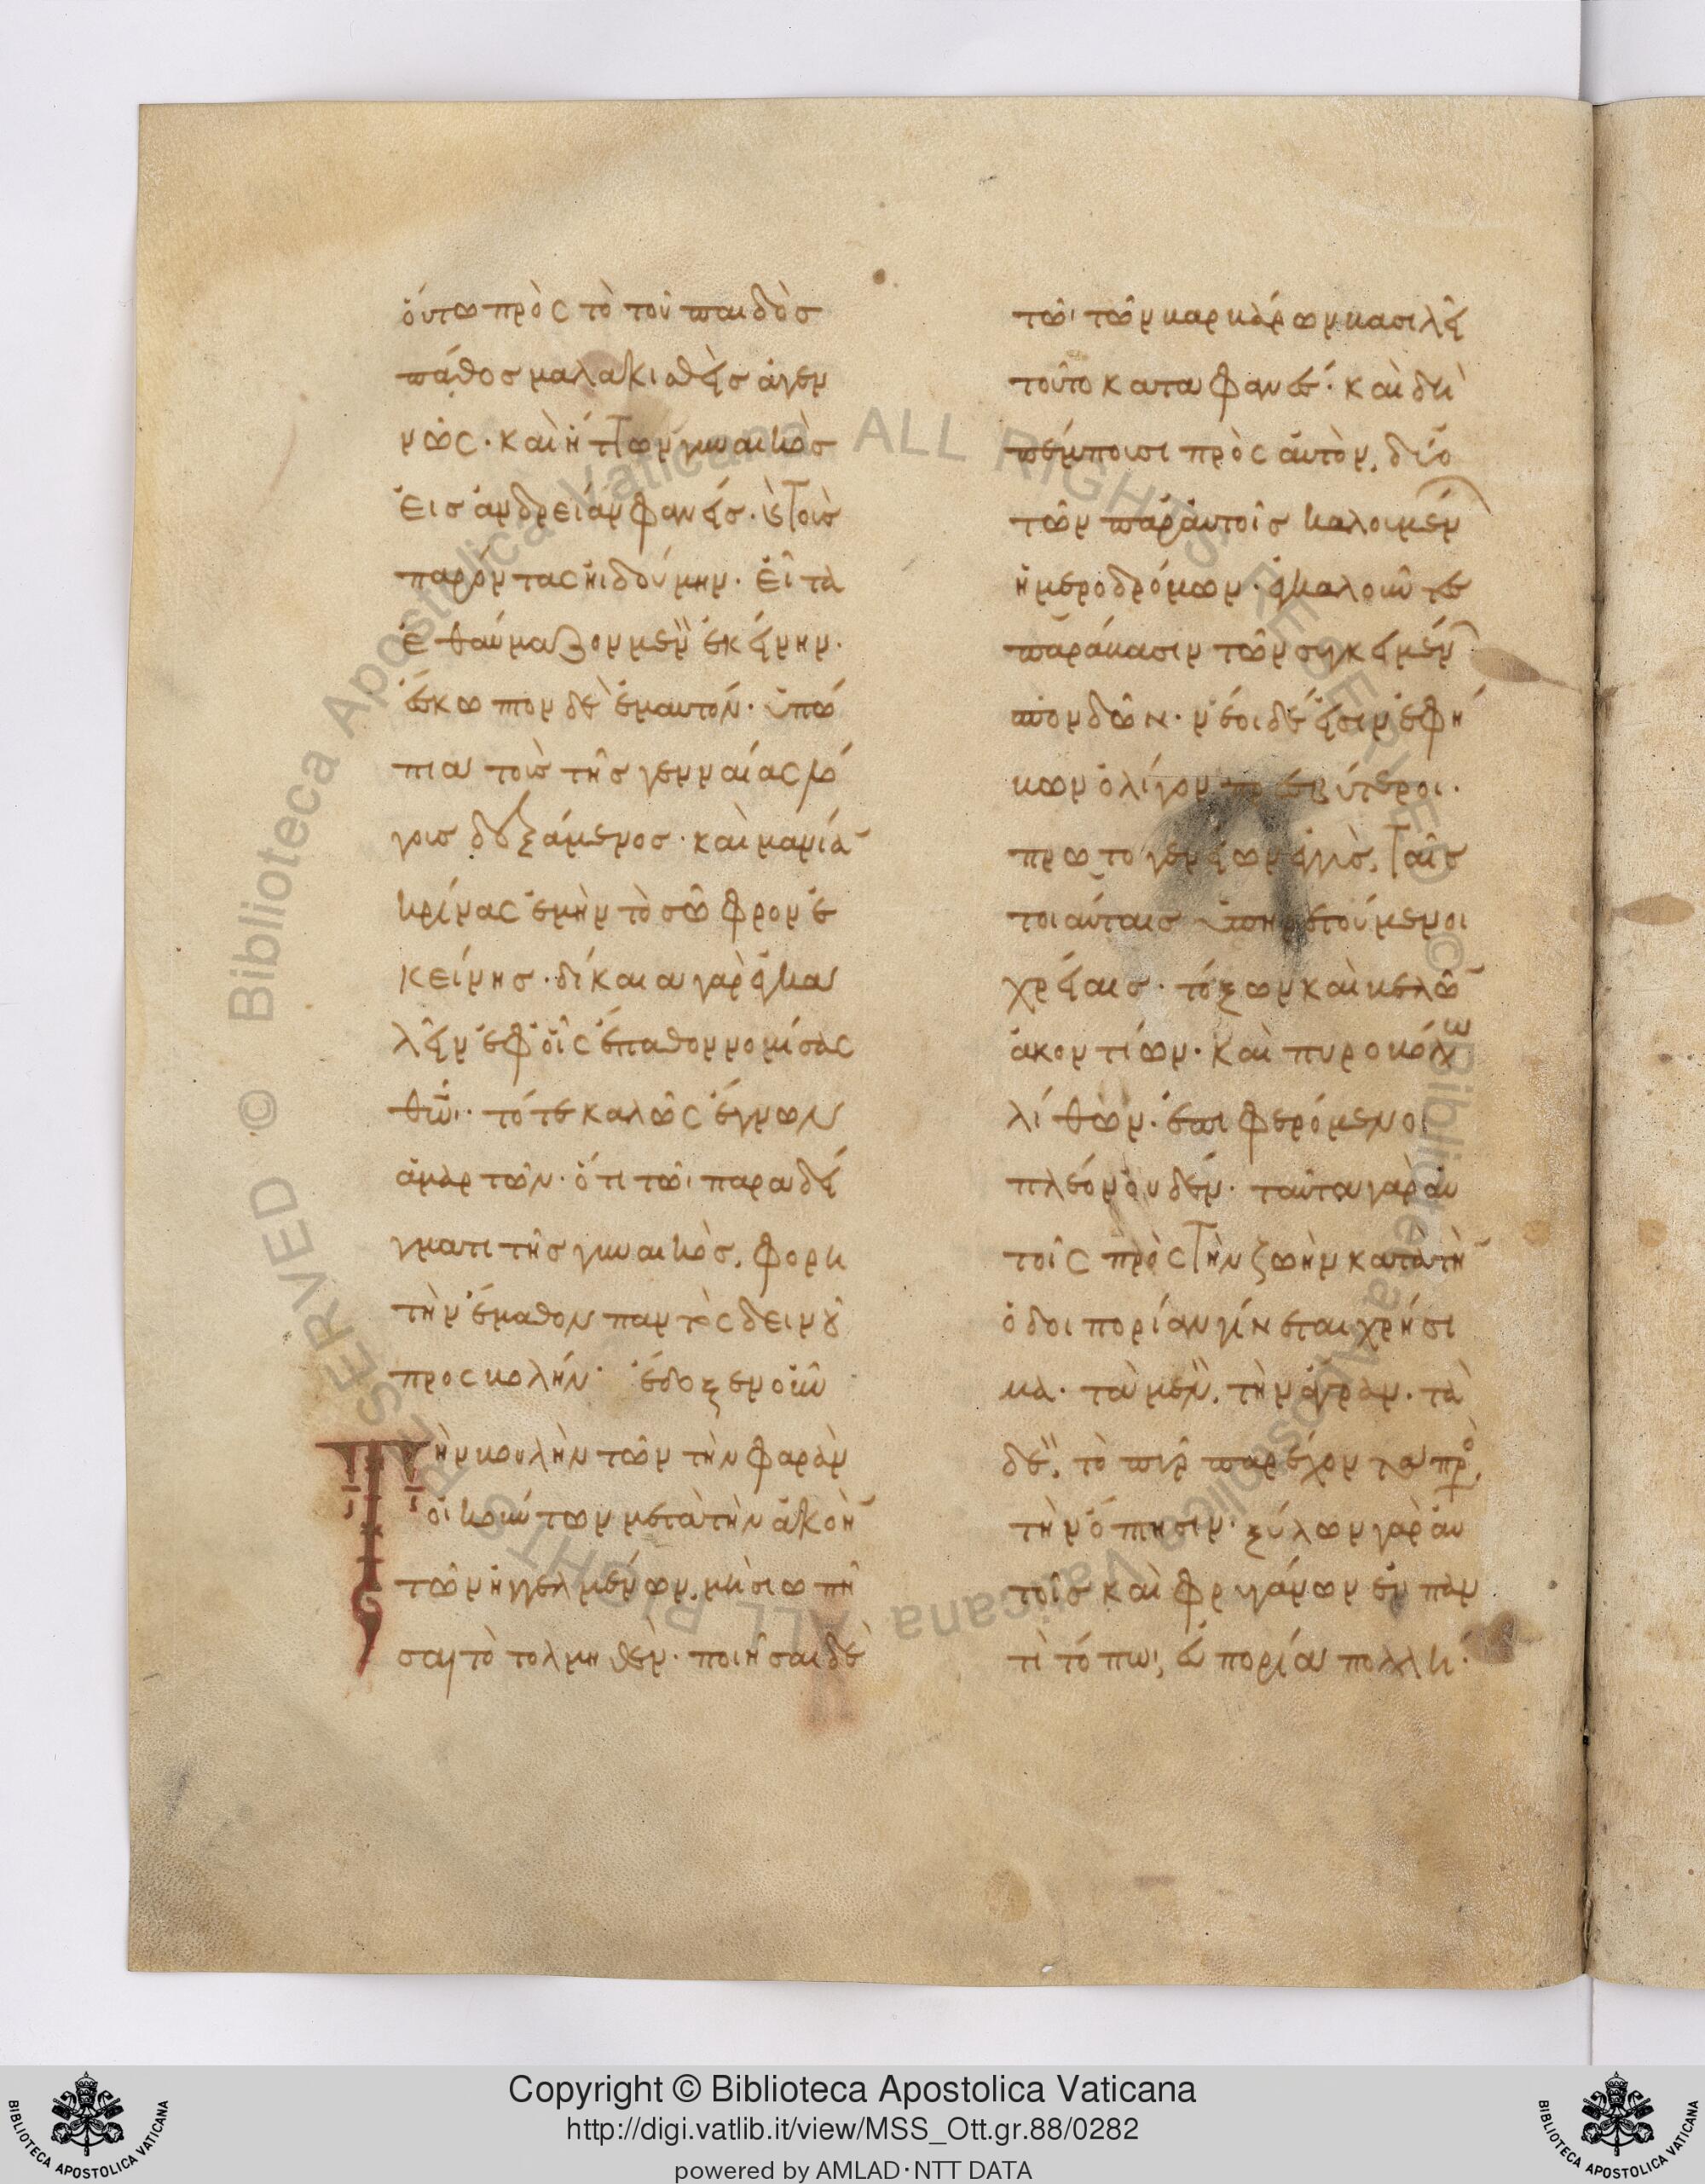 ὁύτω πρὸς τὸ τοῦ παιδὸσ
πάθοσ μαλακισθεὶσ ἀγεν
νῶς· καὶ ἡ τῶν γυναικὸσ
ἐισ ἀνδρείαν φανεῖσ· κ τοὺσ
παρόντας ἠιδούμην· εἶτα
ἐθαύμαζον μὲν ἐκείνην·
ἔκωπτον δὲ ἐμαυτόν· ὑπώ
πια τοῖσ τῆσ γενναίας λό
γοισ δεξάμενοσ· καὶ μανία
κρίνας ἐμὴν τὸ σῶφρον ἐ
κείνησ· δίκαια γὰρ ἐγκα
λεῖν ἐφ' οἷς ἔπαθον νομίσας
θῶ· τότε καλῶς ἔγνων
ἁμαρτῶν· ὅτι τῶ παραδεί
γματι τῆσ γυναικὸσ, φορη
τὴν ἔμαθον παντὸς δεινοῦ
προσβολήν· ἔδοξεν οὖν
Τὴν βουλὴν τῶν τὴν φαρὰν
οἰκούντων μετὰ τὴν ἀκοὴ
τῶν ἠγγελμένων, μὴ σιωπῆ
σαι τὸ τολμηθὲν· ποιῆσαι δὲ
τῶ τῶν βαρβάρων βασιλεῖ
τοῦτο καταφανέσ· καὶ δὴ
πέμπουσι πρὸς αὐτὸν, δύο
τῶν παρ' αὐτοῖσ καλουμέν
ἡμεροδρόμων· ἐγκαλοῦντε
παράβασιν τῶν συγκειμέν
σπονδῶν· νέοι δέ εἰσιν ἐφή
βων ὀλίγον πρεσβύτεροι·
πρωτογενείων εἰγγὺσ, ταῖσ
τοιαύταισ ὑπηρετούμενοι
χρείαισ· τόξων καὶ βελῶ
ἀκοντίων· καὶ πυροβόλω
λίθων· ἐπιφερόμενοι
πλέον οὐδέν· ταῦτα γὰρ αὐ
τοῖς πρὸς τὴν ζωὴν κατὰ τὴ
ὁδοιπορίαν γίνεται χρήσι
μα· τὰ μὲν, τὴν ἄγραν· τὰ
δὲ, τὸ πῦρ παρέχοντα πρὸ
τὴν ὄπτησιν· ξύλων γὰρ αὐ
τοῖσ καὶ φρυγάνων ἐν παν
τὶ τόπω, εὐπορία πολλή·
Copyright © Biblioteca Apostolica Vaticana
http://digi.vatlib.it/view/MSS_Ott.gr.88/0282
powered by AMLAD·NTT DATA
BIBLIOTECA APOSTOLICA VATICANA
BIBLIOTECA APOSTOLICA VATICANA
© Biblioteca Apostolica Vaticana ALL RIGHTS RESERVED
© Biblioteca Apostolica Vaticana ALL RIGHTS RESERVED